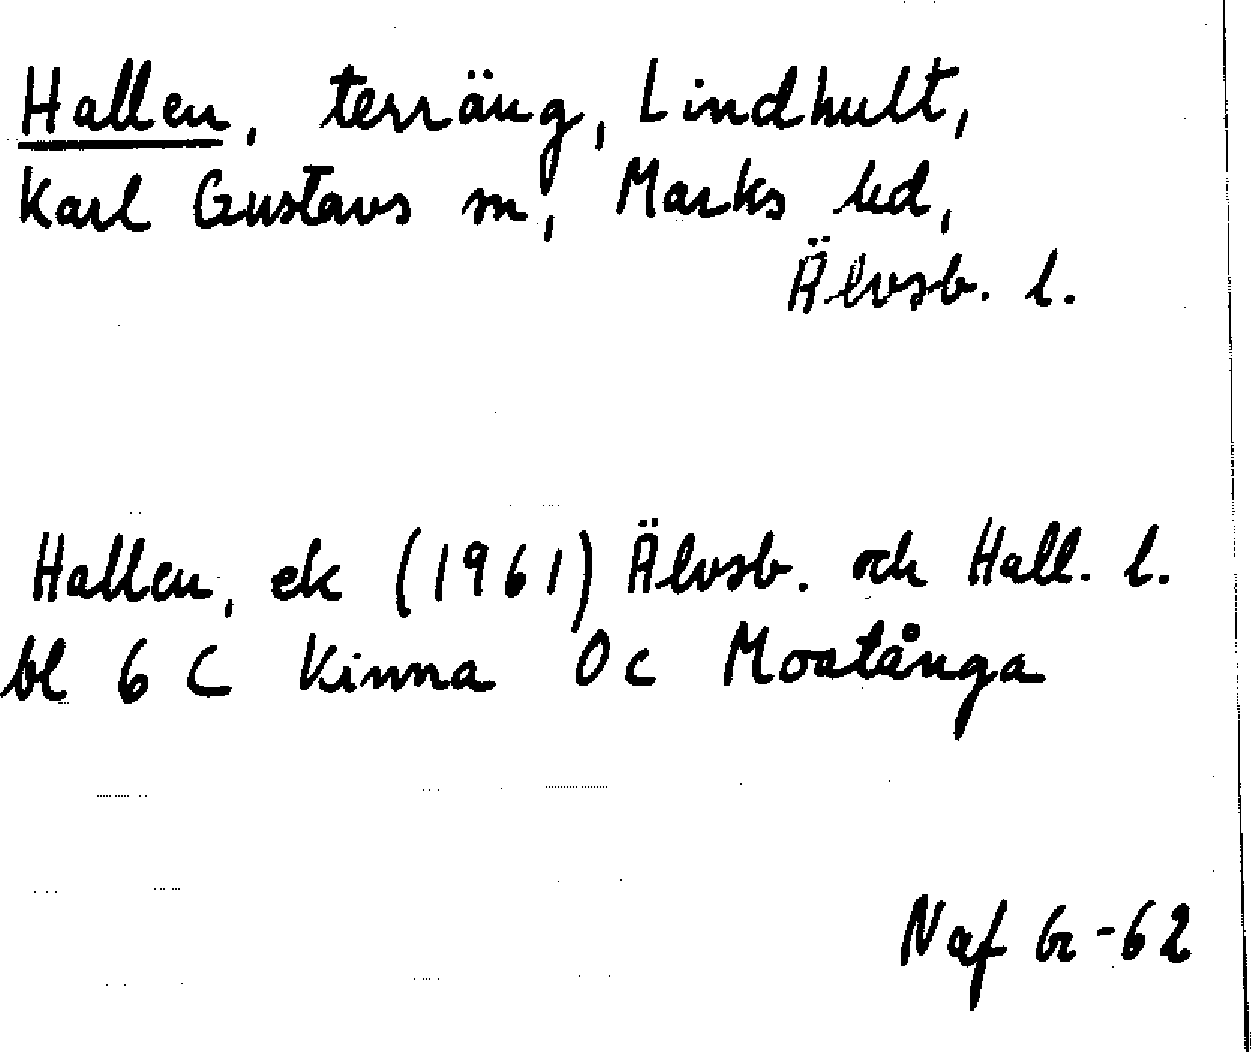 Hallen, terräng, Lindhult,
Karl Gustavs sn, Marks hd,
Älvsb. l.
Hallen, ek (1961) Älvsb. och Hall. l.
bl 6 C Kinna 0c Mostånga
Naf Gr-62